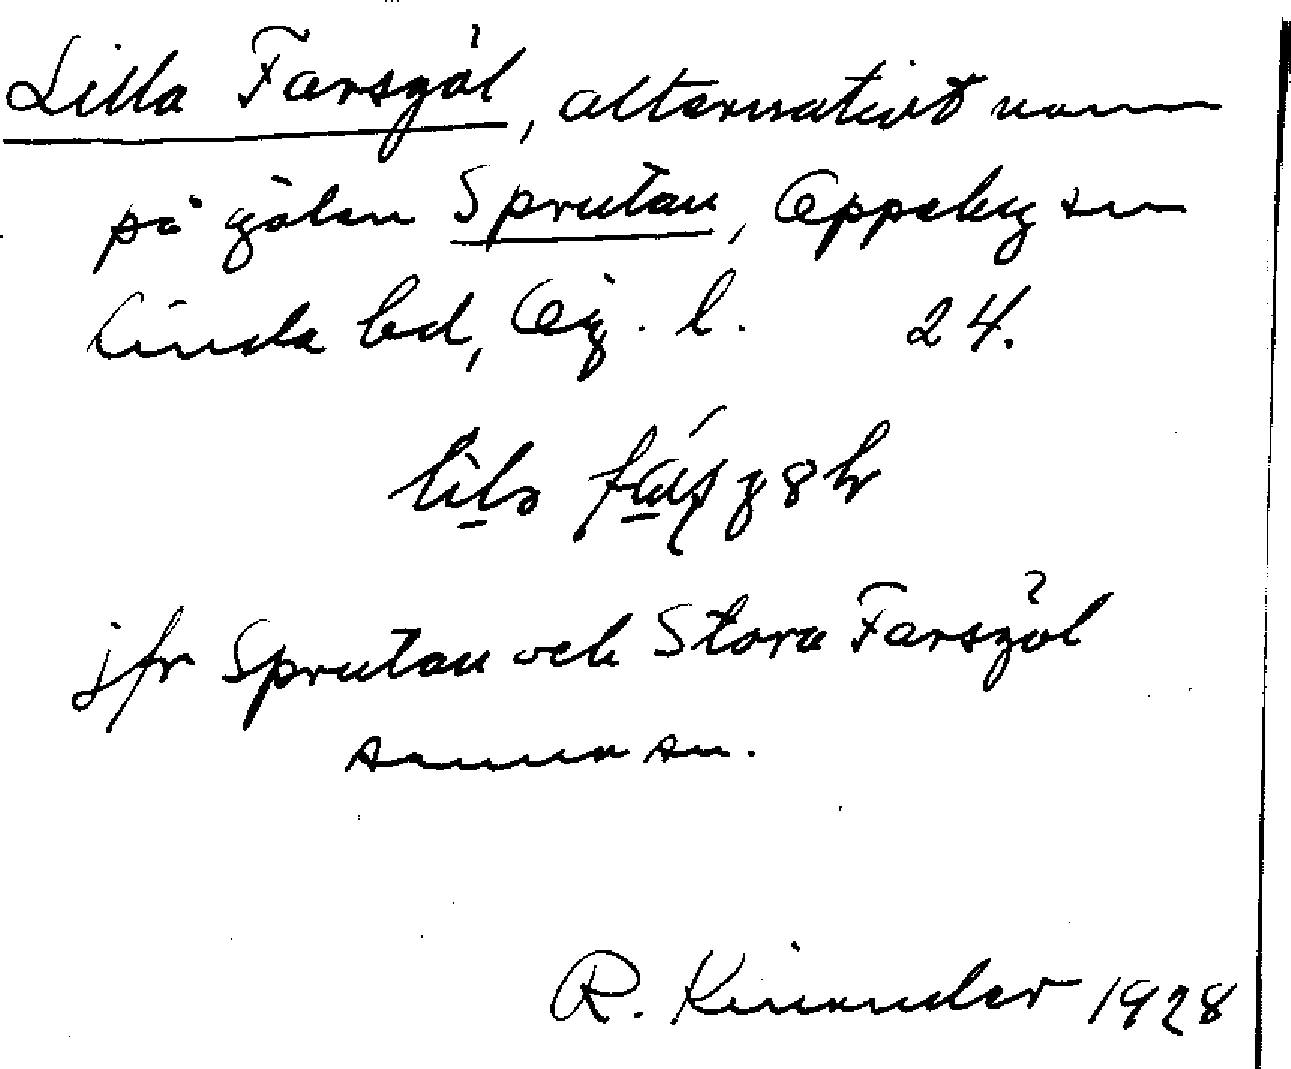 Lilla Farsgöl, alternativt namn
på gölen Sprutan, Oppeby sn
Kinda hd, Ög. l. 24.
jfr Sprutan och Stora Farsgöl
samma sn.
R. Kinander 1928